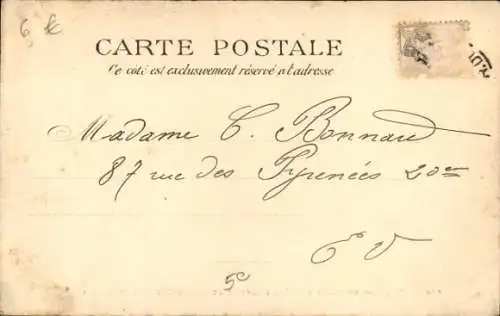 6 €
CARTE POSTALE
Ce côté est exclusivement réservé à l'adresse
Madame C. Bonnard
87 rue des Pyrenées 20e
E V
5c